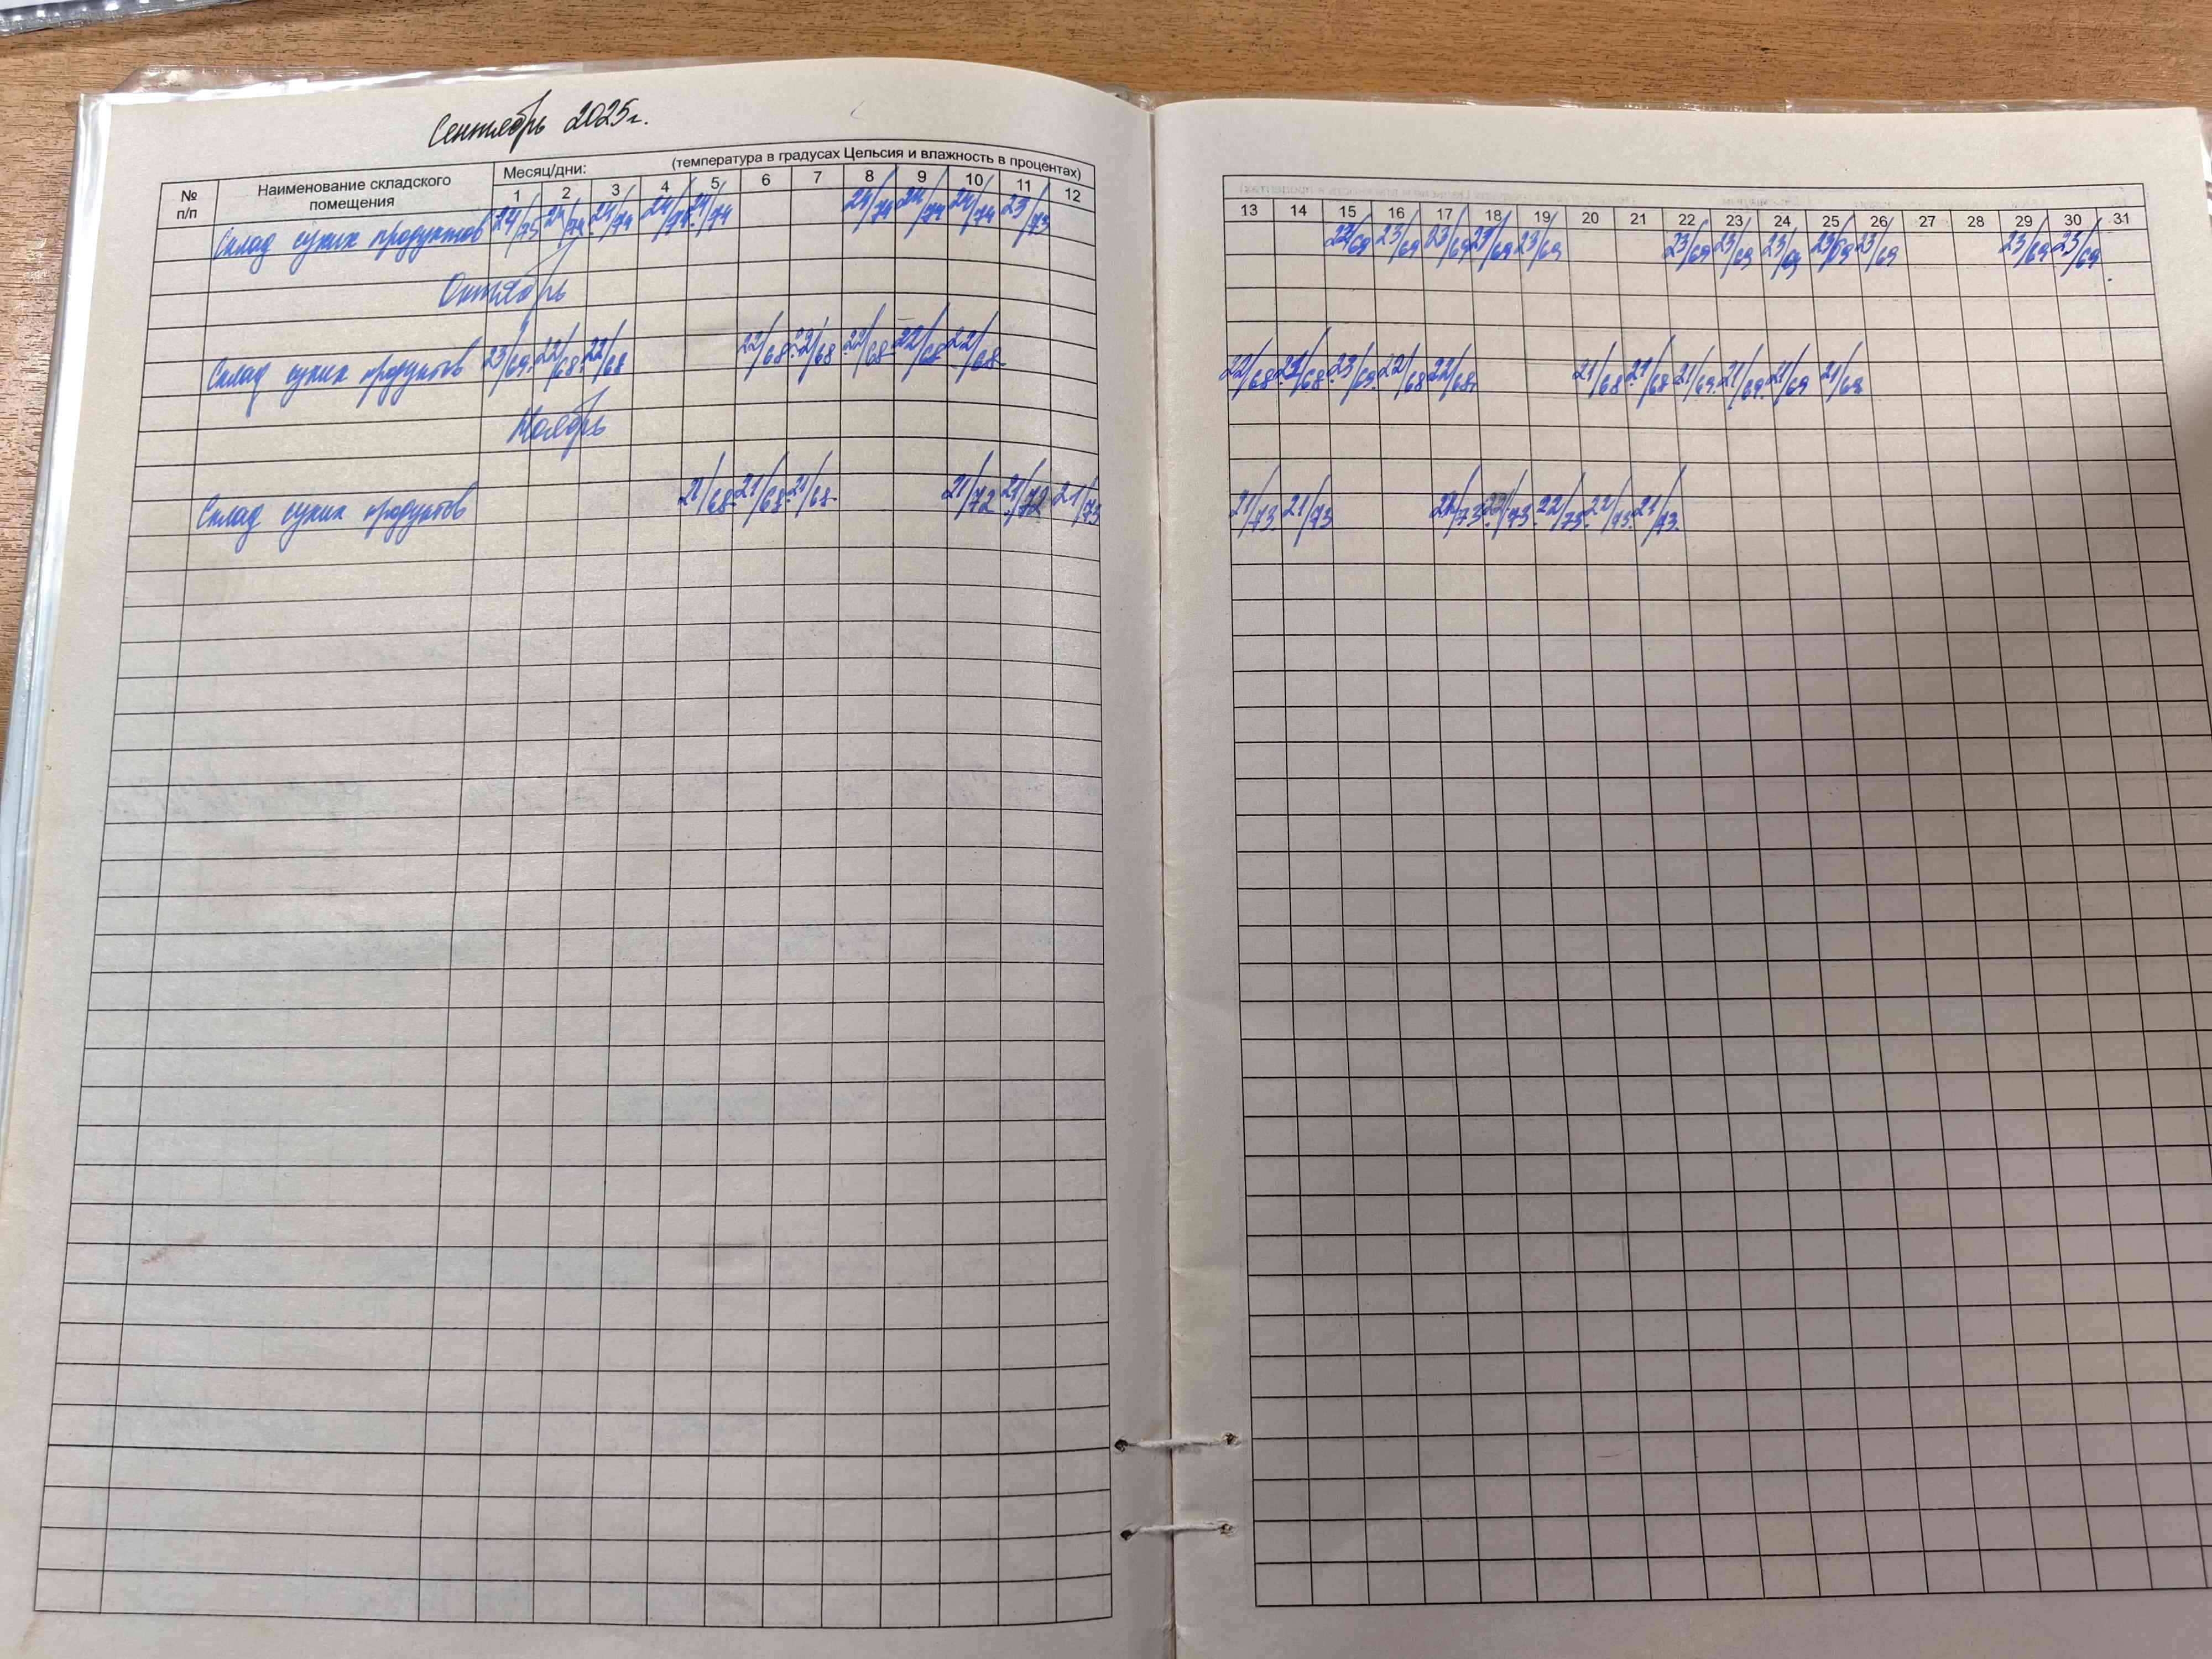 Сентябрь 2025г.
№ п/п Наименование складского помещения Месяц/дни: (температура в градусах Цельсия и влажность в процентах)
1 2 3 4 5 6 7 8 9 10 11 12 13 14 15 16 17 18 19 20 21 22 23 24 25 26 27 28 29 30 31
Склад сухих продуктов 24/75 24/74 24/74 24/74 24/74 24/74 24/74 24/74 23/73 23/69 23/69 23/69 23/69 23/69 23/69 23/69 23/69 23/69 23/69 23/69
Октябрь
Склад сухих продуктов 23/69 22/68 22/68 22/68 22/68 22/68 22/68 22/68 22/68 22/68 23/69 22/68 22/68 21/68 21/68 21/69 21/69 21/69 21/69
Ноябрь
Склад сухих продуктов 21/68 21/68 21/68 21/72 21/72 21/73 21/73 21/73 22/73 22/73 22/73 21/73